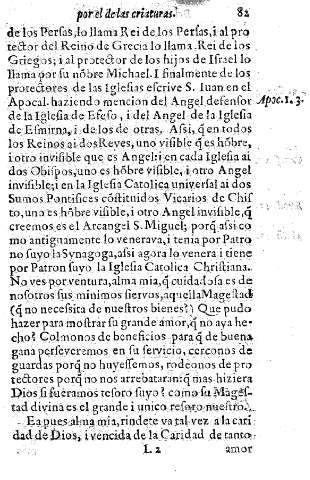 por el de las criaturas. 82
de los Persas, lo llama Rei de los Persas, i al pro
tector del Reino de Grecia lo llama Rei de los
Griegos; i al protector de los hijos de Israel lo
llama por su nõbre Michael. I finalmente de los
protectores de las Iglesias escrive S. Iuan en el
Apocal. haziendo mencion del Angel defensor
Apoc. 1. 3.
de la Iglesia de Efeso, i del Angel de la Iglesia
de Esmirna, i de los de otras. Assi, q̃ en todos
los Reinos ai dos Reyes, uno visible q̃ es hõbre,
i otro invisible que es Angel: i en cada Iglesia ai
dos Obispos, uno es hõbre visible, i otro Angel
invisible; i en la Iglesia Catolica universal ai dos
Sumos Pontifices cõstituidos Vicarios de Chris
to, uno es hõbre visible, i otro Angel invisible, q̃
creemos es el Arcangel S. Miguel; porq̃ assi co
mo antiguamente lo venerava, i tenia por Patro
no suyo la Synagoga, assi agora lo venera i tiene
por Patron suyo la Iglesia Catolica Christiana.
No ves por ventura, alma mia, q̃ cuidadosa es de
nosotros sus minimos siervos, aquella Magestad
(q̃ no necessita de nuestros bienes?) Que pudo
hazer para mostrar su grande amor, q̃ no aya he-
cho? Colmonos de beneficios para q̃ de buena
gana perseveremos en su servicio, cerconos de
guardas porq̃ no huyessemos, rodeonos de pro
tectores porq̃ no nos arrebataran: q̃ mas hiziera
Dios si fueramos tesoro suyo? como su Mages-
tad divina es el grande i unico tesoro nuestro.
Ea pues alma mia, rindete va tal vez a la cari
dad de Dios, i vencida de la Caridad de tanto
L 2 amor